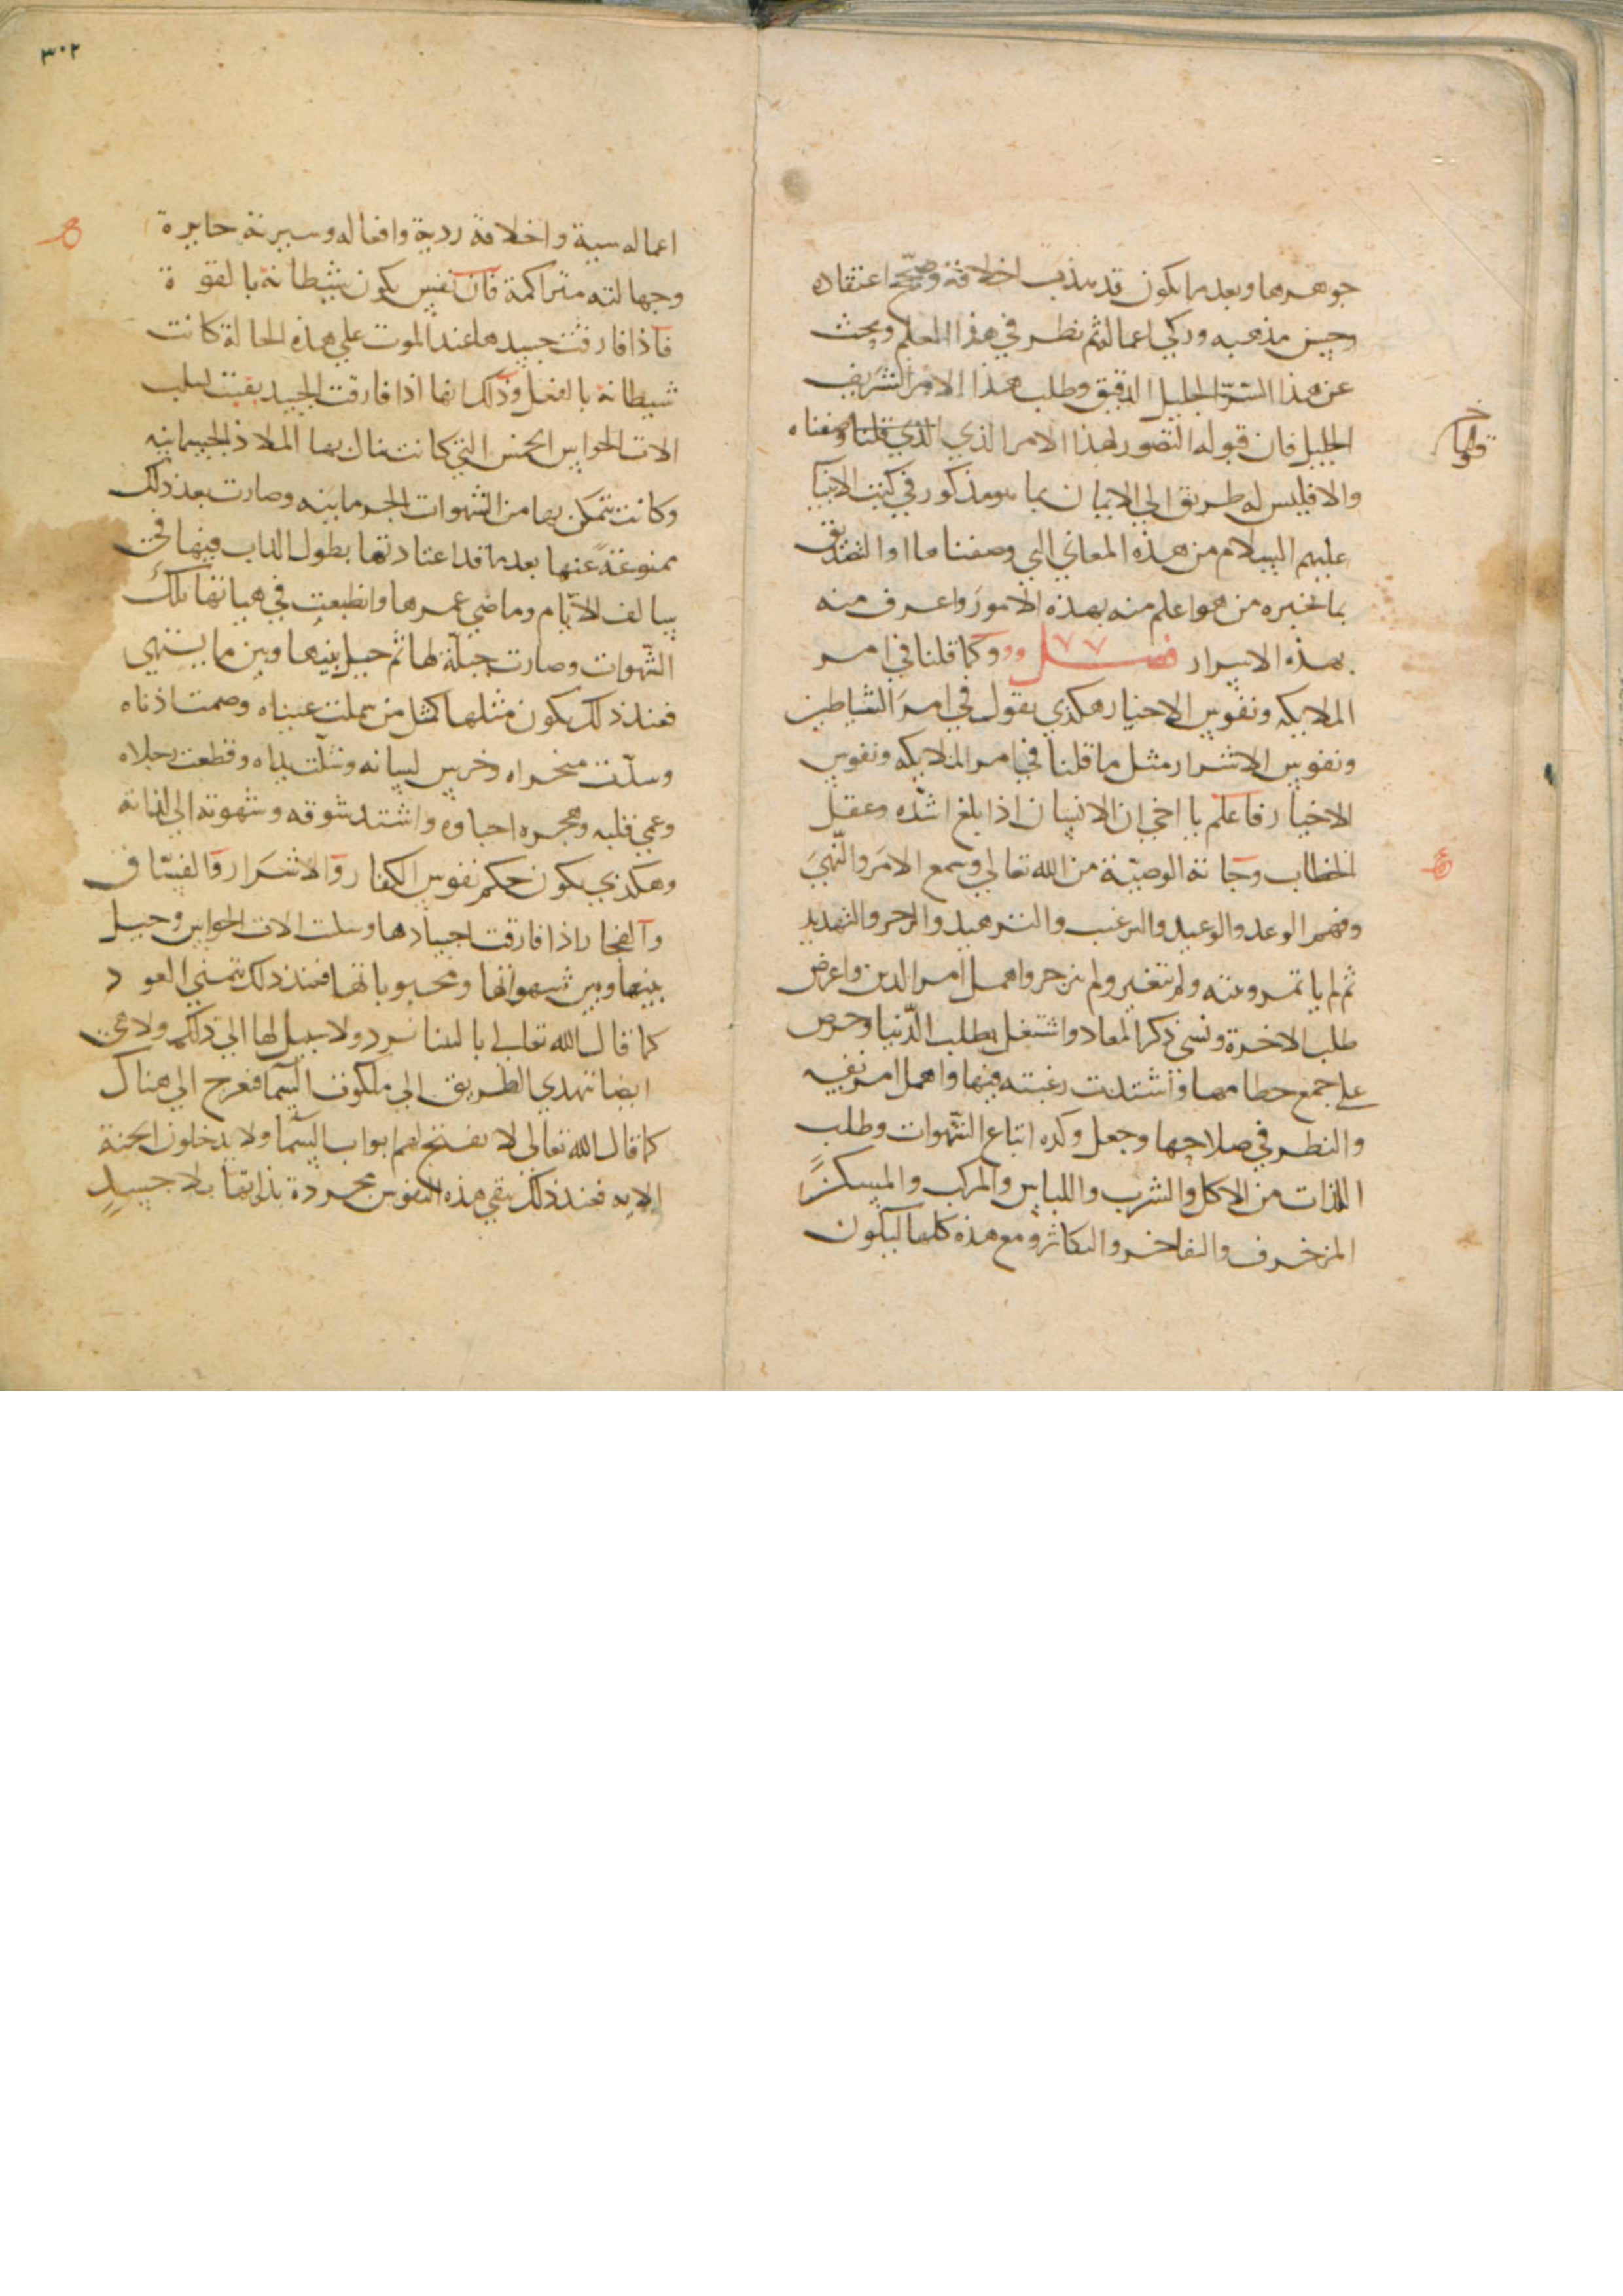 جوهرها وبعدما يكون قد هذب اخلاقه وصحّح اعتقاده
وحسن مذهبه وزكي اعماله ثم نظر في هذا العلم وبحث
عن هذا السّرّ الجليل الدقيق وطلب هذا الامر الشريف
الجليل فان قبوله التصور لهذا الامر الذي الذي قلنا وصفناه
والا فليس له طريق الي الايمان بما هو مذكور في كتب الانبيا
عليهم السلام من هذه المعاني التي وصفناها او التصديق
بما تخبره من هو اعلم منه بهذه الامور واعرف منه
بهذه الاسرار فصل وكما قلنا في امر
الملايكه ونفوس الاخيار هكذي نقول في امر الشياطين
ونفوس الاشرار مثل ما قلنا في امر الملايكه ونفوس
الاخيار فاعلم يا اخي ان الانسان اذا بلغ اشدّه وعقل
الخطاب وجاته الوصيّة من الله تعالي وسمع الامر والنّهي
وفهم الوعد والوعيد والترغيب والترهيب والزجر والتهديد
ثم لم ياتمر ولم ينزجر واهمل امر الدين واعرض
طلب الاخرة ونسي ذكر المعاد واشتغل بطلب الدّنيا وحرص
علي جمع حطامها واشتدت رغبته فيها واهمل امر نفسه
والنظر في صلاحها وجعل وكده اتباع الشّهوات وطلب
اللذات من الاكل والشرب واللباس والمركب والمسكن
المزخرف والتفاخر والتكاثر ومع هذه كلها ليكون
٣٠٢
اعماله سية واخلاقه ردية وافعاله وسيرته جايرة
وجهالته متراكمة فان نفس يكون شيطانة بالقوة
فاذا فارقت جسدها عند الموت علي هذه الحالة كانت
شيطانة بالفعل وذلك انها اذا فارقت الجسد بقيت لسلب
الات الحواس الخمس التي كانت تنال بها الملاذ الجسمانيه
وكانت تتمكن بها من الشهوات الجرمانيه وصارت بعد ذلك
ممنوعة عنها بعدما قد اعتادتها بطول الداب فيها في
سالف الايّام وماضي عمرها وانطبعت في هيااتها تلك
الشّهوات وصارت جبلّة لها ثم حيل بينها وبين ما يشتهي
فعند ذلك يكون مثلها كمثل من سملت عيناه وصمت اذناه
وسدّت منخراه وخرس لسانه وشلّت يداه وقطعت رجلاه
وعمي قلبه وهجره احباوه واشتد شوقه وشهوته الي لذاته
وهكذي يكون حكم نفوس الكفار والاشرار والفسّاق
والفجار اذا فارقت اجسادها وسلت الات الحواس وحيل
بينها وبين شهواتها ومحبوباتها فعند ذلك تتمني العود
كما قال الله تعالي يا ليتنا نرد ولا سبيل لها الي ذلك ولا هي
ايضا تهدي الطريق الي ملكوت السما فعرج الي هناك
كما قال الله تعالي لا تفتح لهم ابواب السّما ولا يدخلون الجنة
الايه فعند ذلك تبقي هذه النفوس مجردة بذاتها بلا جسدٍ